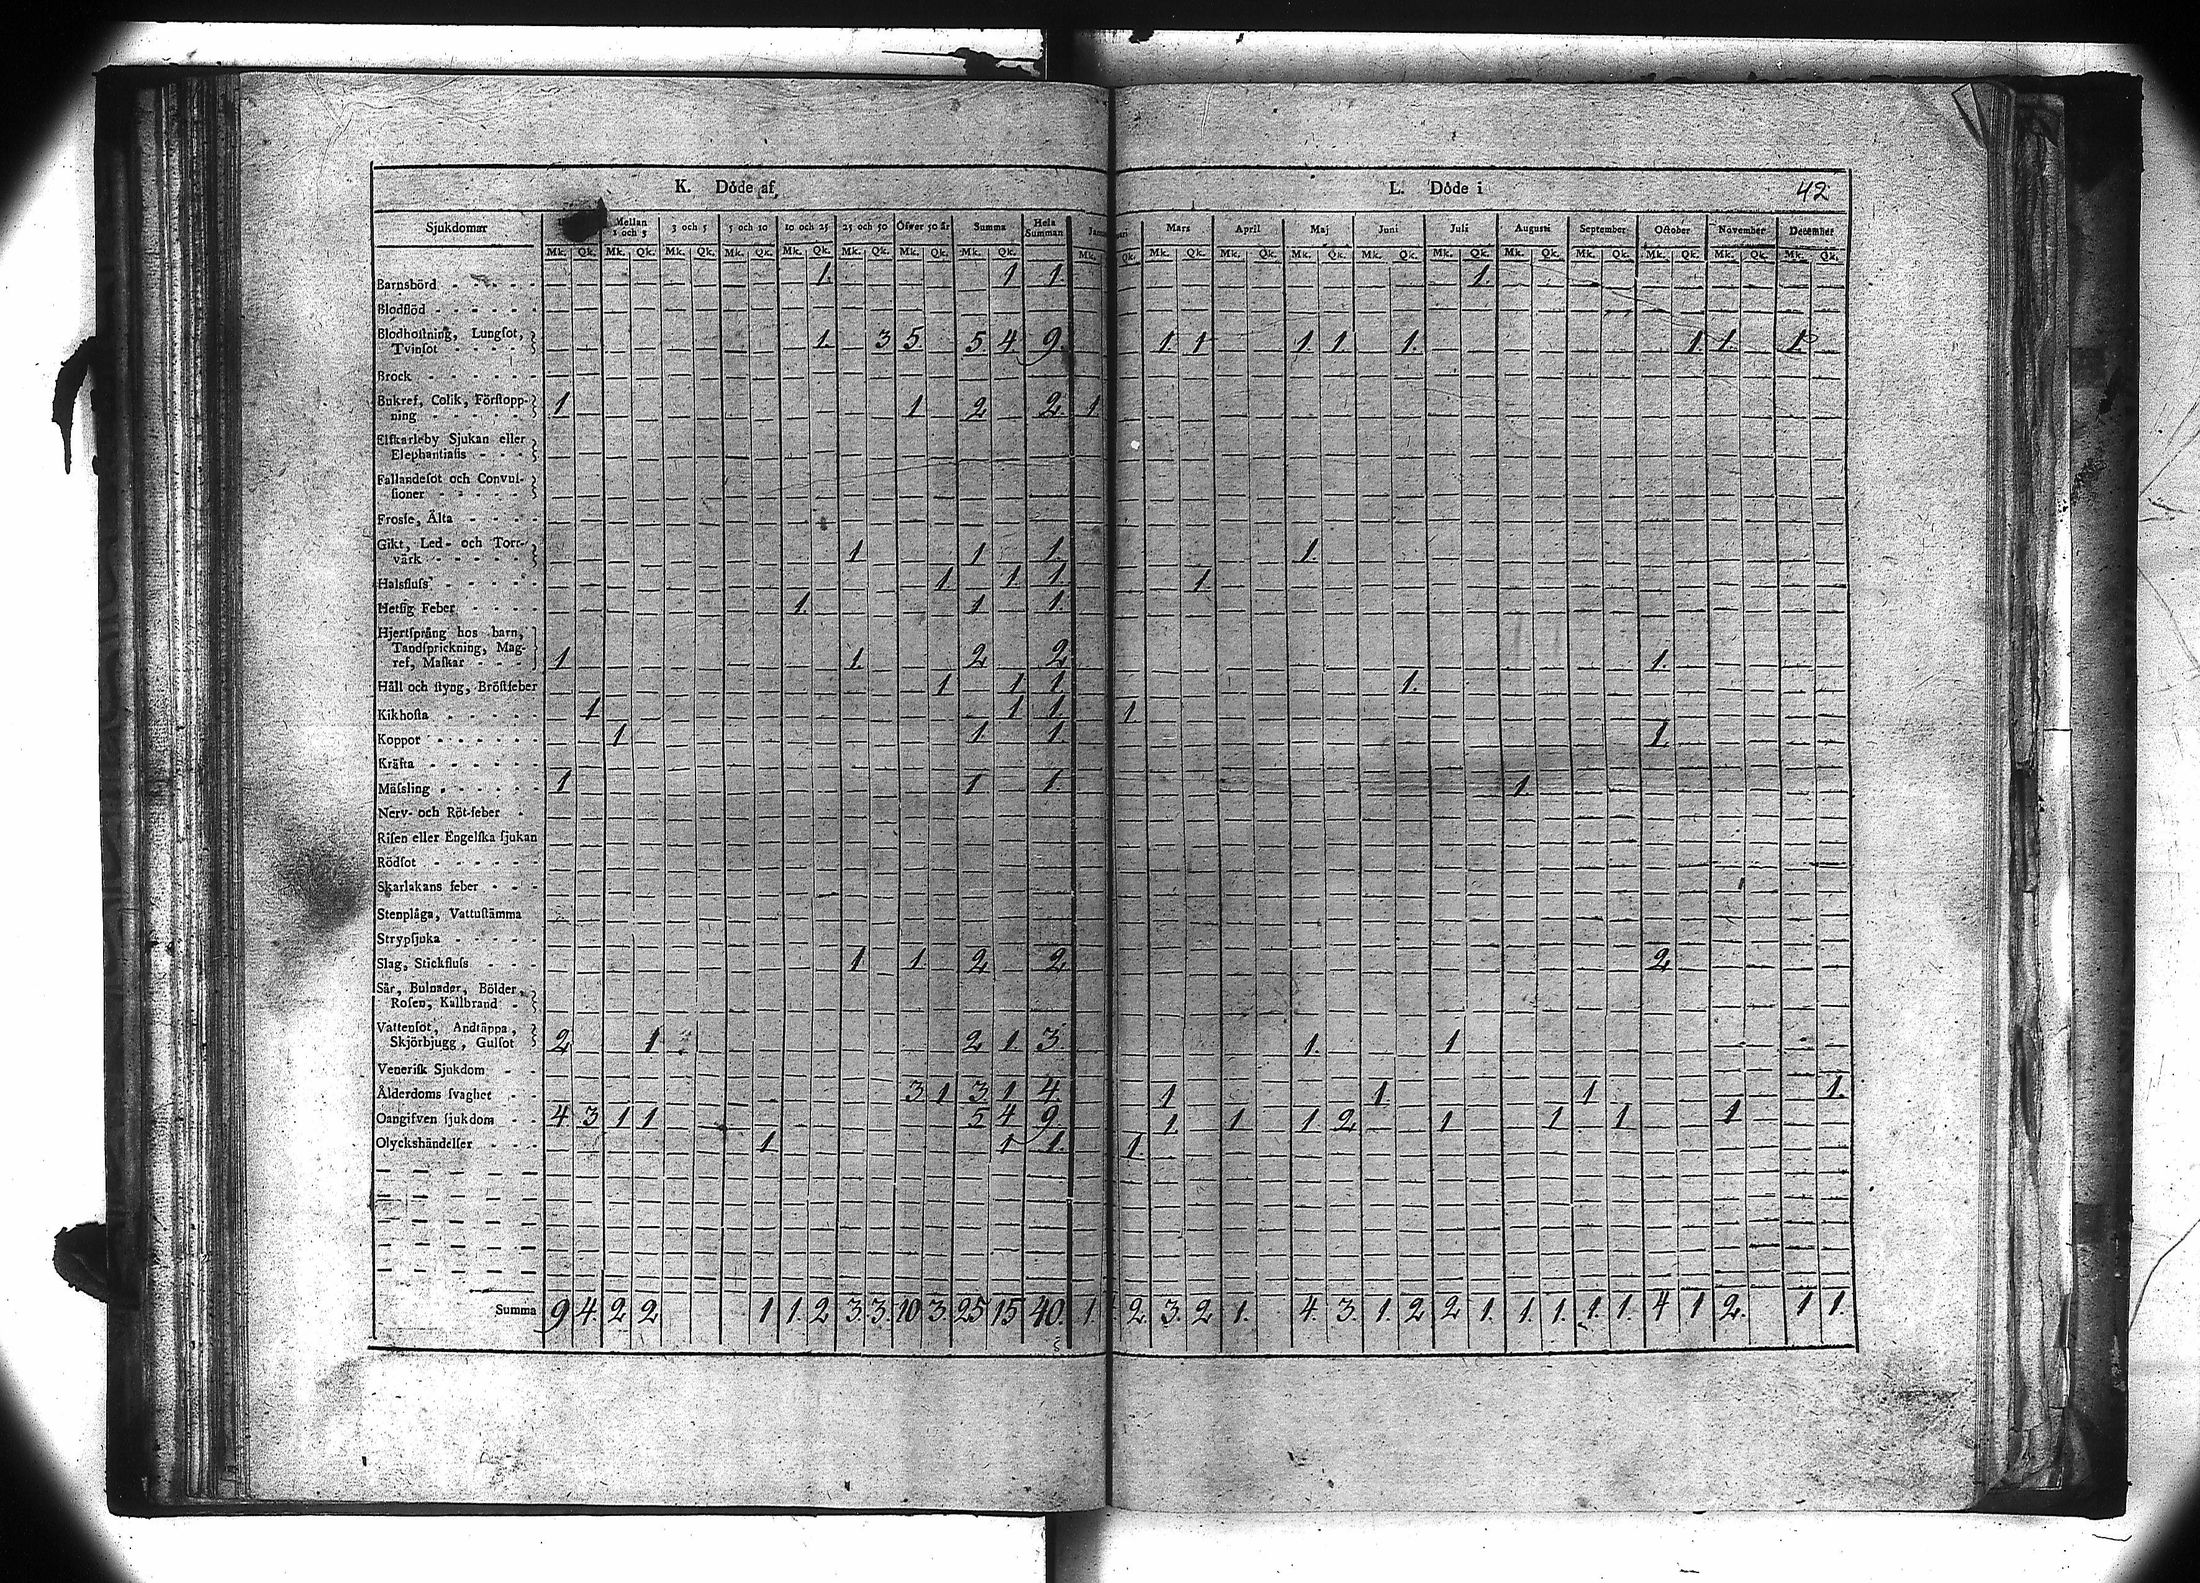 K. Döde af
L. Döde i 42
Sjukdomar Mellan 1 och 3 3 och 5 5 och 10 10 och 25 25 och 50 Öfver 50 år Summa Hela Summan Mars April Maj Juni Juli Augusti September October November December
Mk. Qk. Mk. Qk. Mk. Qk. Mk. Qk. Mk. Qk. Mk. Qk. Mk. Qk. Mk. Qk. Mk. Qk. Mk. Qk. Mk. Qk. Mk. Qk. Mk. Qk. Mk. Qk. Mk. Qk. Mk. Qk. Mk. Qk. Mk. Qk. Mk. Qk.
Barnsbörd 1. 1 1. 1.
Blodflöd
Blodhoſtning, Lungſot,
Tvinſot 1. 3 5 5 4 9. 1. 1 1. 1. 1. 1. 1. 1.
Brock
Bukref, Colik, Förſtopp-
ning 1 1 2 2 1
Elfkarleby Sjukan eller
Elephantiaſis
Fallandeſot och Convul-
ſioner
Froſſe, Älta
Gikt, Led- och Torr-
värk 1 1 1. 1.
Halsfluſs 1. 1. 1. 1.
Hetſig Feber 1. 1 1.
Hjertſprång hos barn,
Tandſprickning, Mag-
ref, Maſkar 1 1. 2 2 1.
Håll och ſtyng, Bröſtfeber 1 1 1. 1.
Kikhoſta 1 1 1. 1
Koppor 1 1. 1. 1.
Kräfta
Mäſsling 1 1 1. 1
Nerv- och Röt-feber
Riſen eller Engelſka ſjukan
Rödſot
Skarlakans feber
Stenplåga, Vattuſtämma
Strypſjuka
Slag, Stickfluſs 1 1 2 2 2
Sår, Bulnader, Bölder,
Roſen, Kallbrand
Vattenſot, Andtäppa,
Skjörbjugg, Gulſot 2 1 2 1. 3. 1. 1
Veneriſk Sjukdom
Ålderdoms ſvaghet 3 1 3 1 4. 1 1. 1 1.
Oangifven ſjukdom 4 3 1 1 5 4 9 1 1 1 2 1 1 1 1
Olyckshändelſer 1 1 1. 1.
Summa 9 4. 2 2 1 1. 2 3. 3. 10 3. 25 15 40. 1. 2. 3. 2 1. 4. 3. 1. 2 2 1. 1. 1. 1. 1. 4 1 2. 1 1.